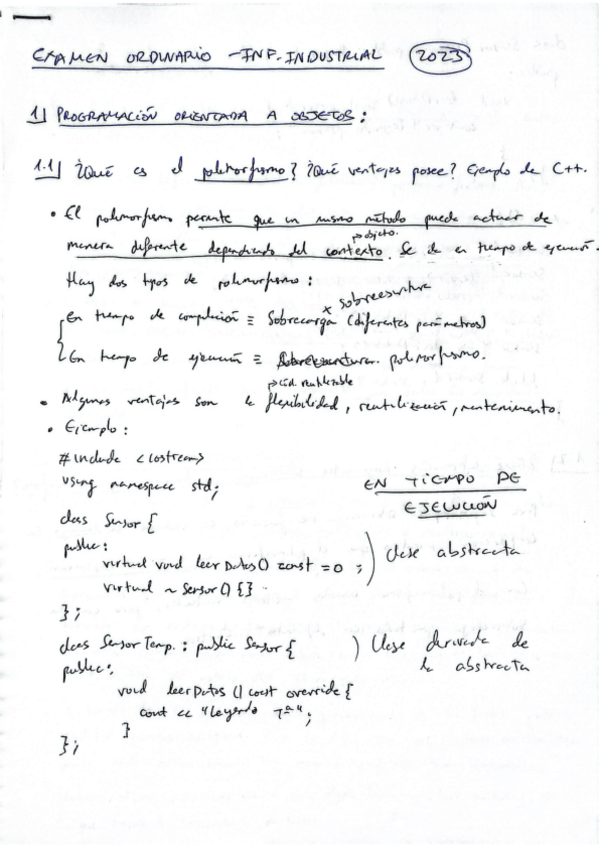 EXAMEN ORDINARIO - INF. INDUSTRIAL 2023
1) PROGRAMACIÓN ORIENTADA A OBJETOS:
1.1) ¿Qué es el polimorfismo? ¿Qué ventajas posee? Ejemplo de C++.
• El polimorfismo permite que un mismo método pueda actuar de
manera diferente dependiendo del contexto. Se da en tiempo de ejecución.
→ objeto.
Hay dos tipos de polimorfismo:
En tiempo de compilación ≡ Sobrecarga (diferentes parámetros)
x sobreescritura
En tiempo de ejecución ≡ polimorfismo.
→ cód. reutilizable
• Algunas ventajas son la flexibilidad, reutilización, mantenimiento.
• Ejemplo:
#include <iostream>
using namespace std;
EN TIEMPO DE
EJECUCIÓN
class Sensor {
public:
virtual void leerDatos() const = 0 ; ) Clase abstracta
virtual ~Sensor() {}
};
class SensorTemp. : public Sensor { ) Clase derivada de
la abstracta
public:
void leerDatos () const override {
cout << "Leyendo Tª";
}
};